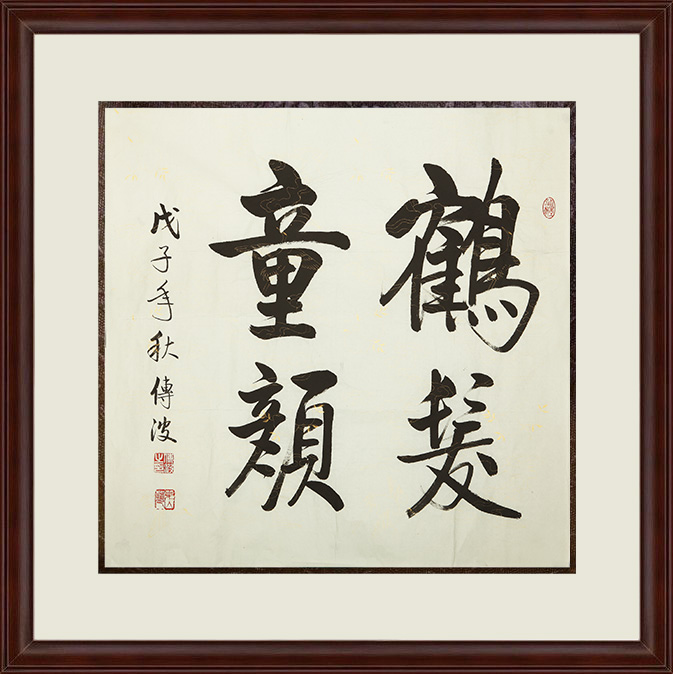 鶴髮
童顏
戊子年秋傳波